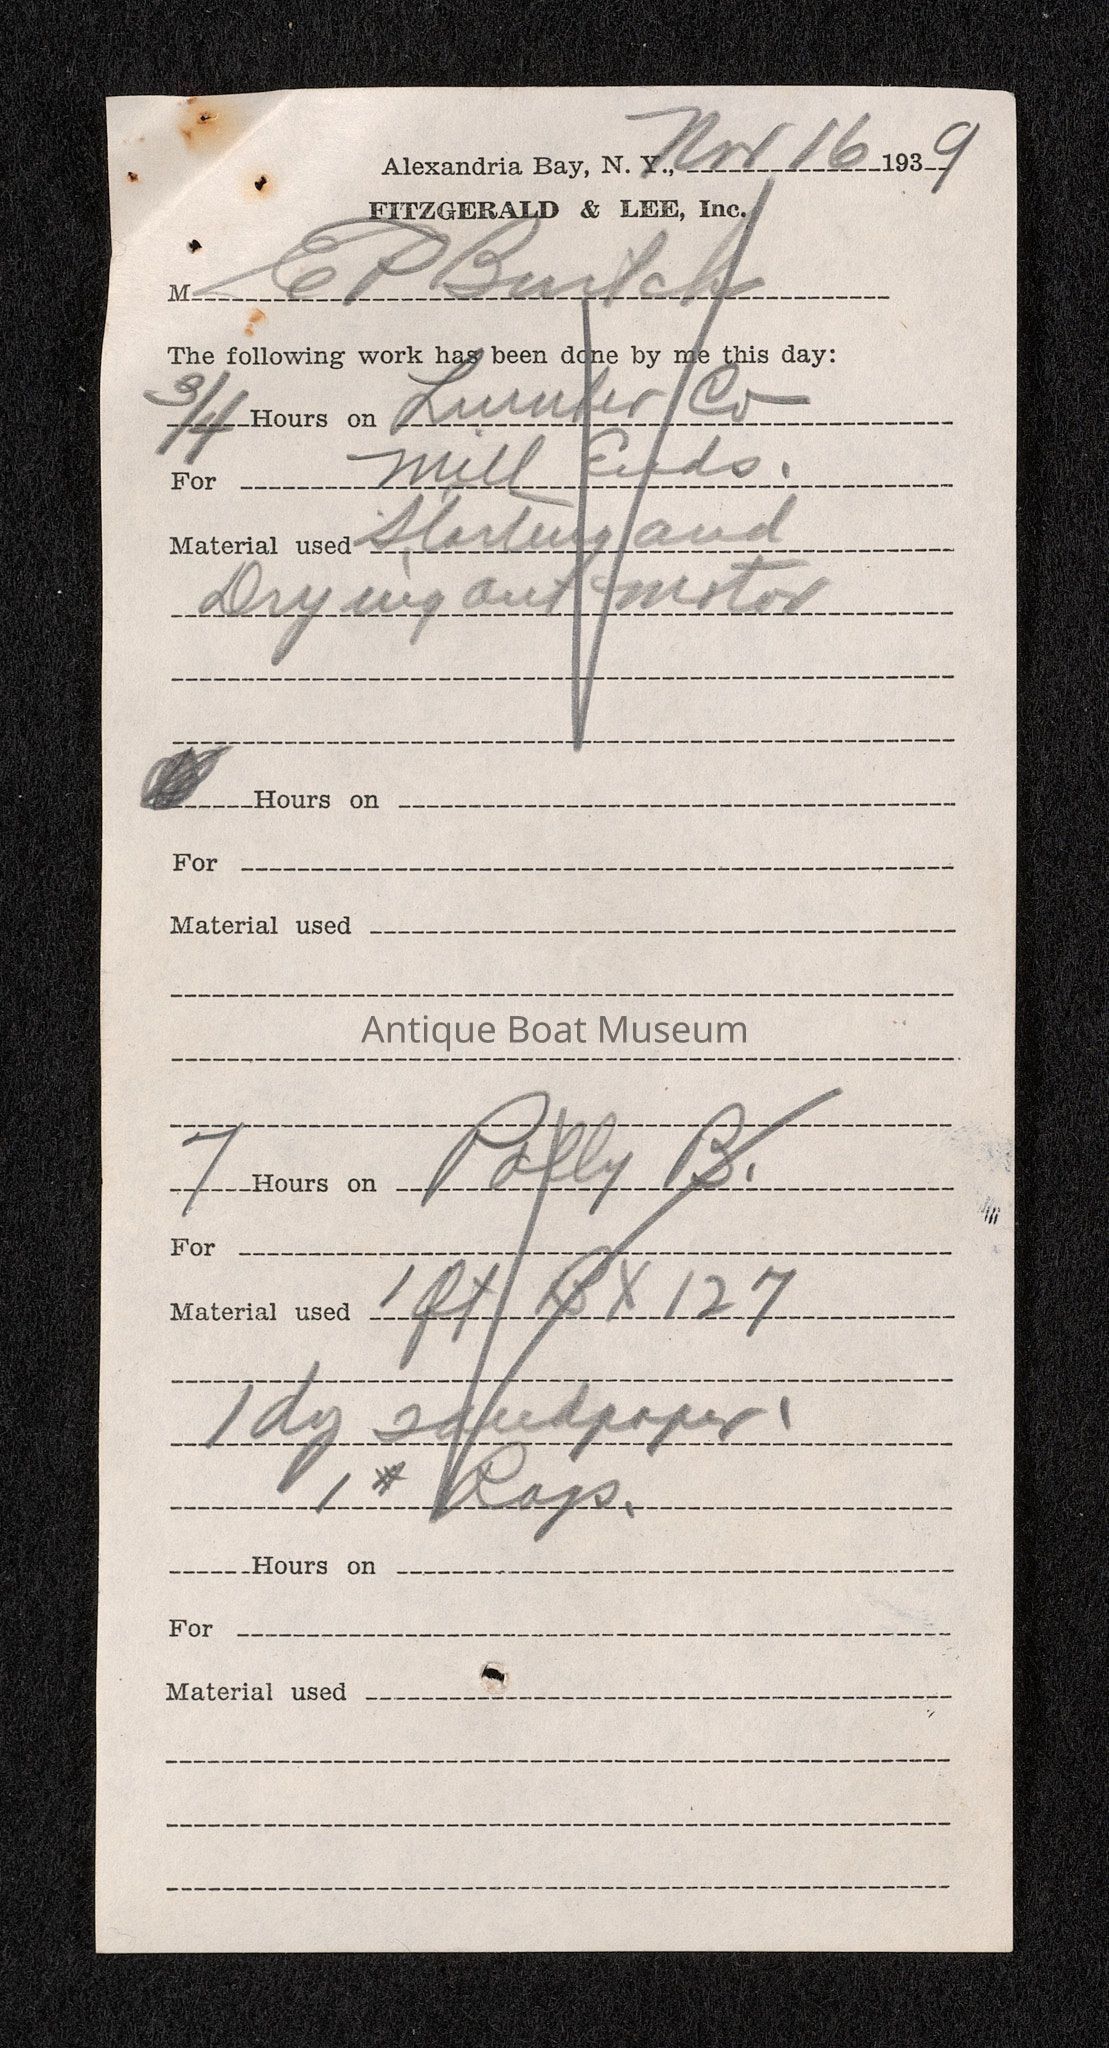 Alexandria Bay, N. Y., Nov 16 1939
FITZGERALD & LEE, Inc.
M E P Burtch
The following work has been done by me this day:
3/4 Hours on Lumber Co
For Mill Ends.
Material used Starting and
Drying out motor
Hours on
For
Material used
Antique Boat Museum
7 Hours on Polly B.
For
Material used 1 ft BX 127
1 dz sandpaper.
1 # Rags.
Hours on
For
Material used